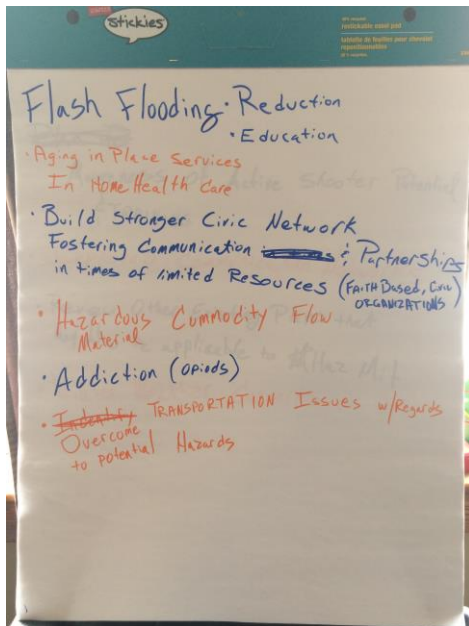 stickies
Flash Flooding · Reduction
· Education
· Aging in Place Services
In Home Health Care
· Build Stronger Civic Network
Fostering Communication & Partnerships
in times of limited Resources (FAITH Based, Civic
ORGANIZATIONS)
· Hazardous Commodity Flow
Material
· Addiction (opiods)
· Indentify TRANSPORTATION Issues w/Regards
Overcome
to potential Hazards